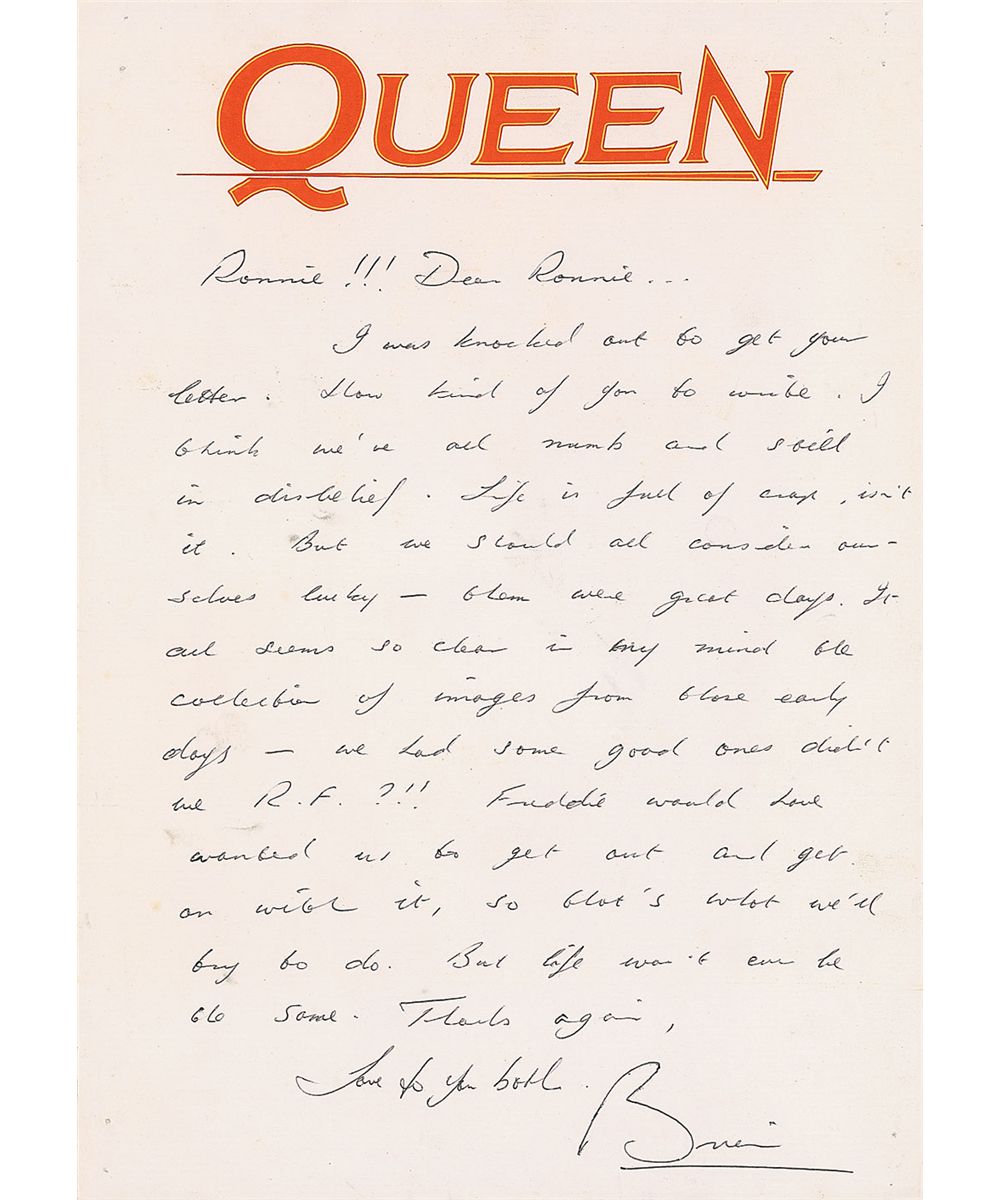 QUEEN
Ronnie!!! Dear Ronnie...
I was knocked out to get your
letter. How kind of you to write. I
think we've all numb and still
in disbelief. Life is full of crap, isn't
it. But we should all consider our-
selves lucky — them were great days. It
all seems so clear in my mind the
collection of images from those early
days — we had some good ones didn't
we R.F.?!! Freddie would have
wanted us to get out and get
on with it, so that's what we'll
try to do. But life won't ever be
the same. Thanks again,
Love to you both.
Brian